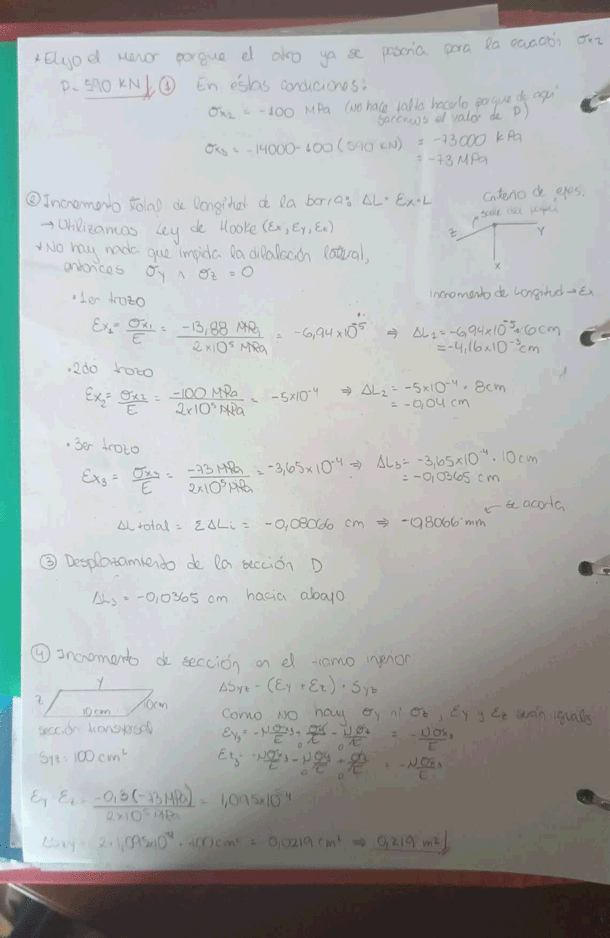 * Elijo el menor porque el otro ya se pasaría para la ecuación σx2
P= 590 KN ① En éstas condiciones:
σx2 = -100 MPa (No hace falta hacerlo porque de aquí sacamos el valor de P)
σx3 = -14000-100 (590 KN) = -73000 KPa
= -73 MPa
② Incremento total de longitud de la barra: ΔL = Ex·L
→ Utilizamos Ley de Hooke (Ex, Ey, Ez)
* No hay nada que impida la dilatación lateral,
entonces σy ∧ σz = 0
Criterio de ejes.
z y
x
incremento de longitud → Ex
• 1er trozo
Ex1 = σx1/E = -13,88 MPa / 2×10⁵ MPa = -6,94×10⁻⁵ ⇒ ΔL1 = -6,94×10⁻⁵·6cm
= -4,16×10⁻³ cm
• 2do trozo
Ex2 = σx2/E = -100 MPa / 2×10⁵ MPa = -5×10⁻⁴ ⇒ ΔL2 = -5×10⁻⁴ · 8cm
= -0,04 cm
• 3er trozo
Ex3 = σx3/E = -73 MPa / 2×10⁵ MPa = -3,65×10⁻⁴ ⇒ ΔL3 = -3,65×10⁻⁴ · 10cm
= -0,0365 cm
se acorta
ΔLtotal = ΣΔLi = -0,08066 cm ⇒ -0,8066 mm
③ Desplazamiento de la sección D
ΔL3 = -0,0365 cm hacia abajo
④ Incremento de sección en el tramo inferior
y
z
10cm 10cm
sección transversal
Syz = 100 cm²
ΔSyz = (Ey + Ez) · Syz
Como NO hay σy ni σz, Ey y Ez serán iguales
Ey3 = -νσx3/E + σy/E - νσz/E = -νσx3/E
0 0
Ez3 = -νσx3/E - νσy/E + σz/E = -νσx3/E
0 0
Ey Ez = -0,3(-73 MPa) / 2×10⁵ MPa = 1,095×10⁻⁴
2·1,095×10⁻⁴ · 100cm² = 0,0219 cm² ⇒ 0,219 m²